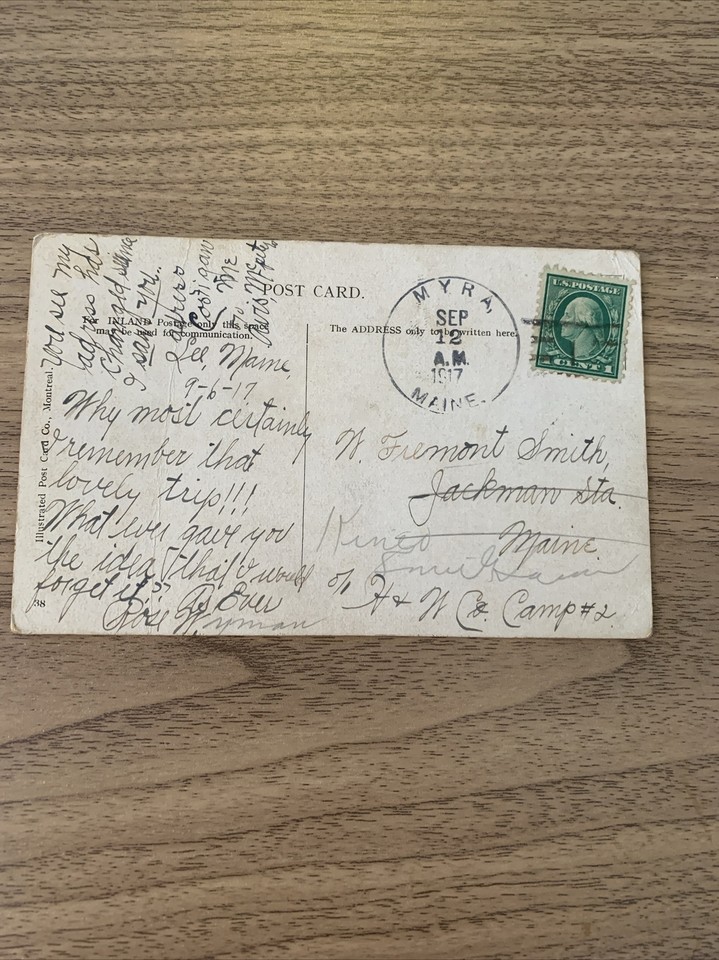 POST CARD.
For INLAND Postage only this space
may be used for communication.
The ADDRESS only to be written here.
Illustrated Post Card Co., Montreal.
38
MYRA,
SEP
12
A.M.
1917
MAINE.
U.S. POSTAGE
1 CENT 1
you see my
adress has
changed since
I saw you.
Lee, Maine,
9-6-17
Why most certainly
I remember that
lovely trip!!!
What ever gave you
the idea that I would
forget it??
Rose Wyman
W. Fremont Smith,
Jackman Sta.
Kineo Maine
% H & W Co. Camp #2